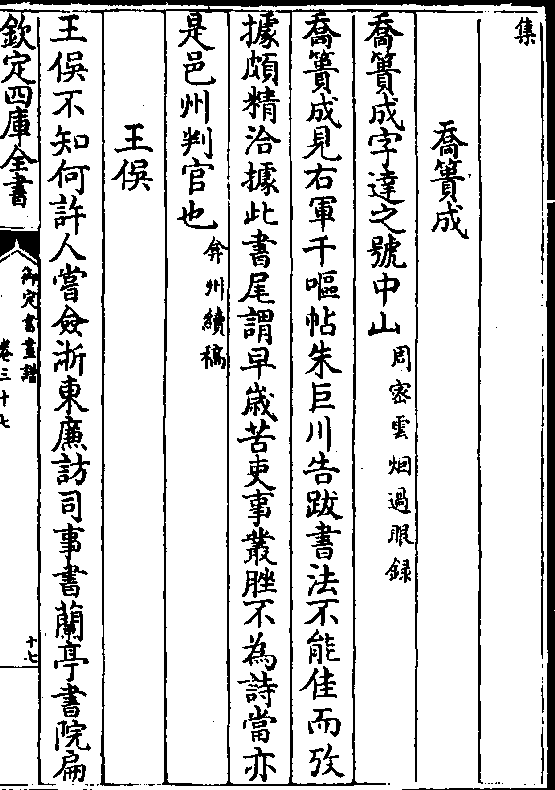 集
喬簣成
喬簣成字達之號中山周密雲烟過眼録
喬簣成見右軍千嘔帖朱巨川告跋書法不能佳而攷
據頗精洽據此書尾謂早歳苦吏事叢脞不為詩當亦
是邑州判官也弇州續稿
王俁
王俁不知何許人嘗僉浙東廉訪司事書蘭亭書院扁
欽定四庫全書
御定書畫譜
卷三十七
十七